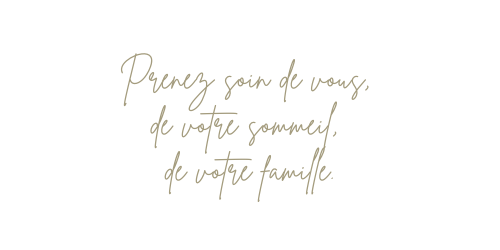 Prenez soin de vous,
de votre sommeil,
de votre famille.